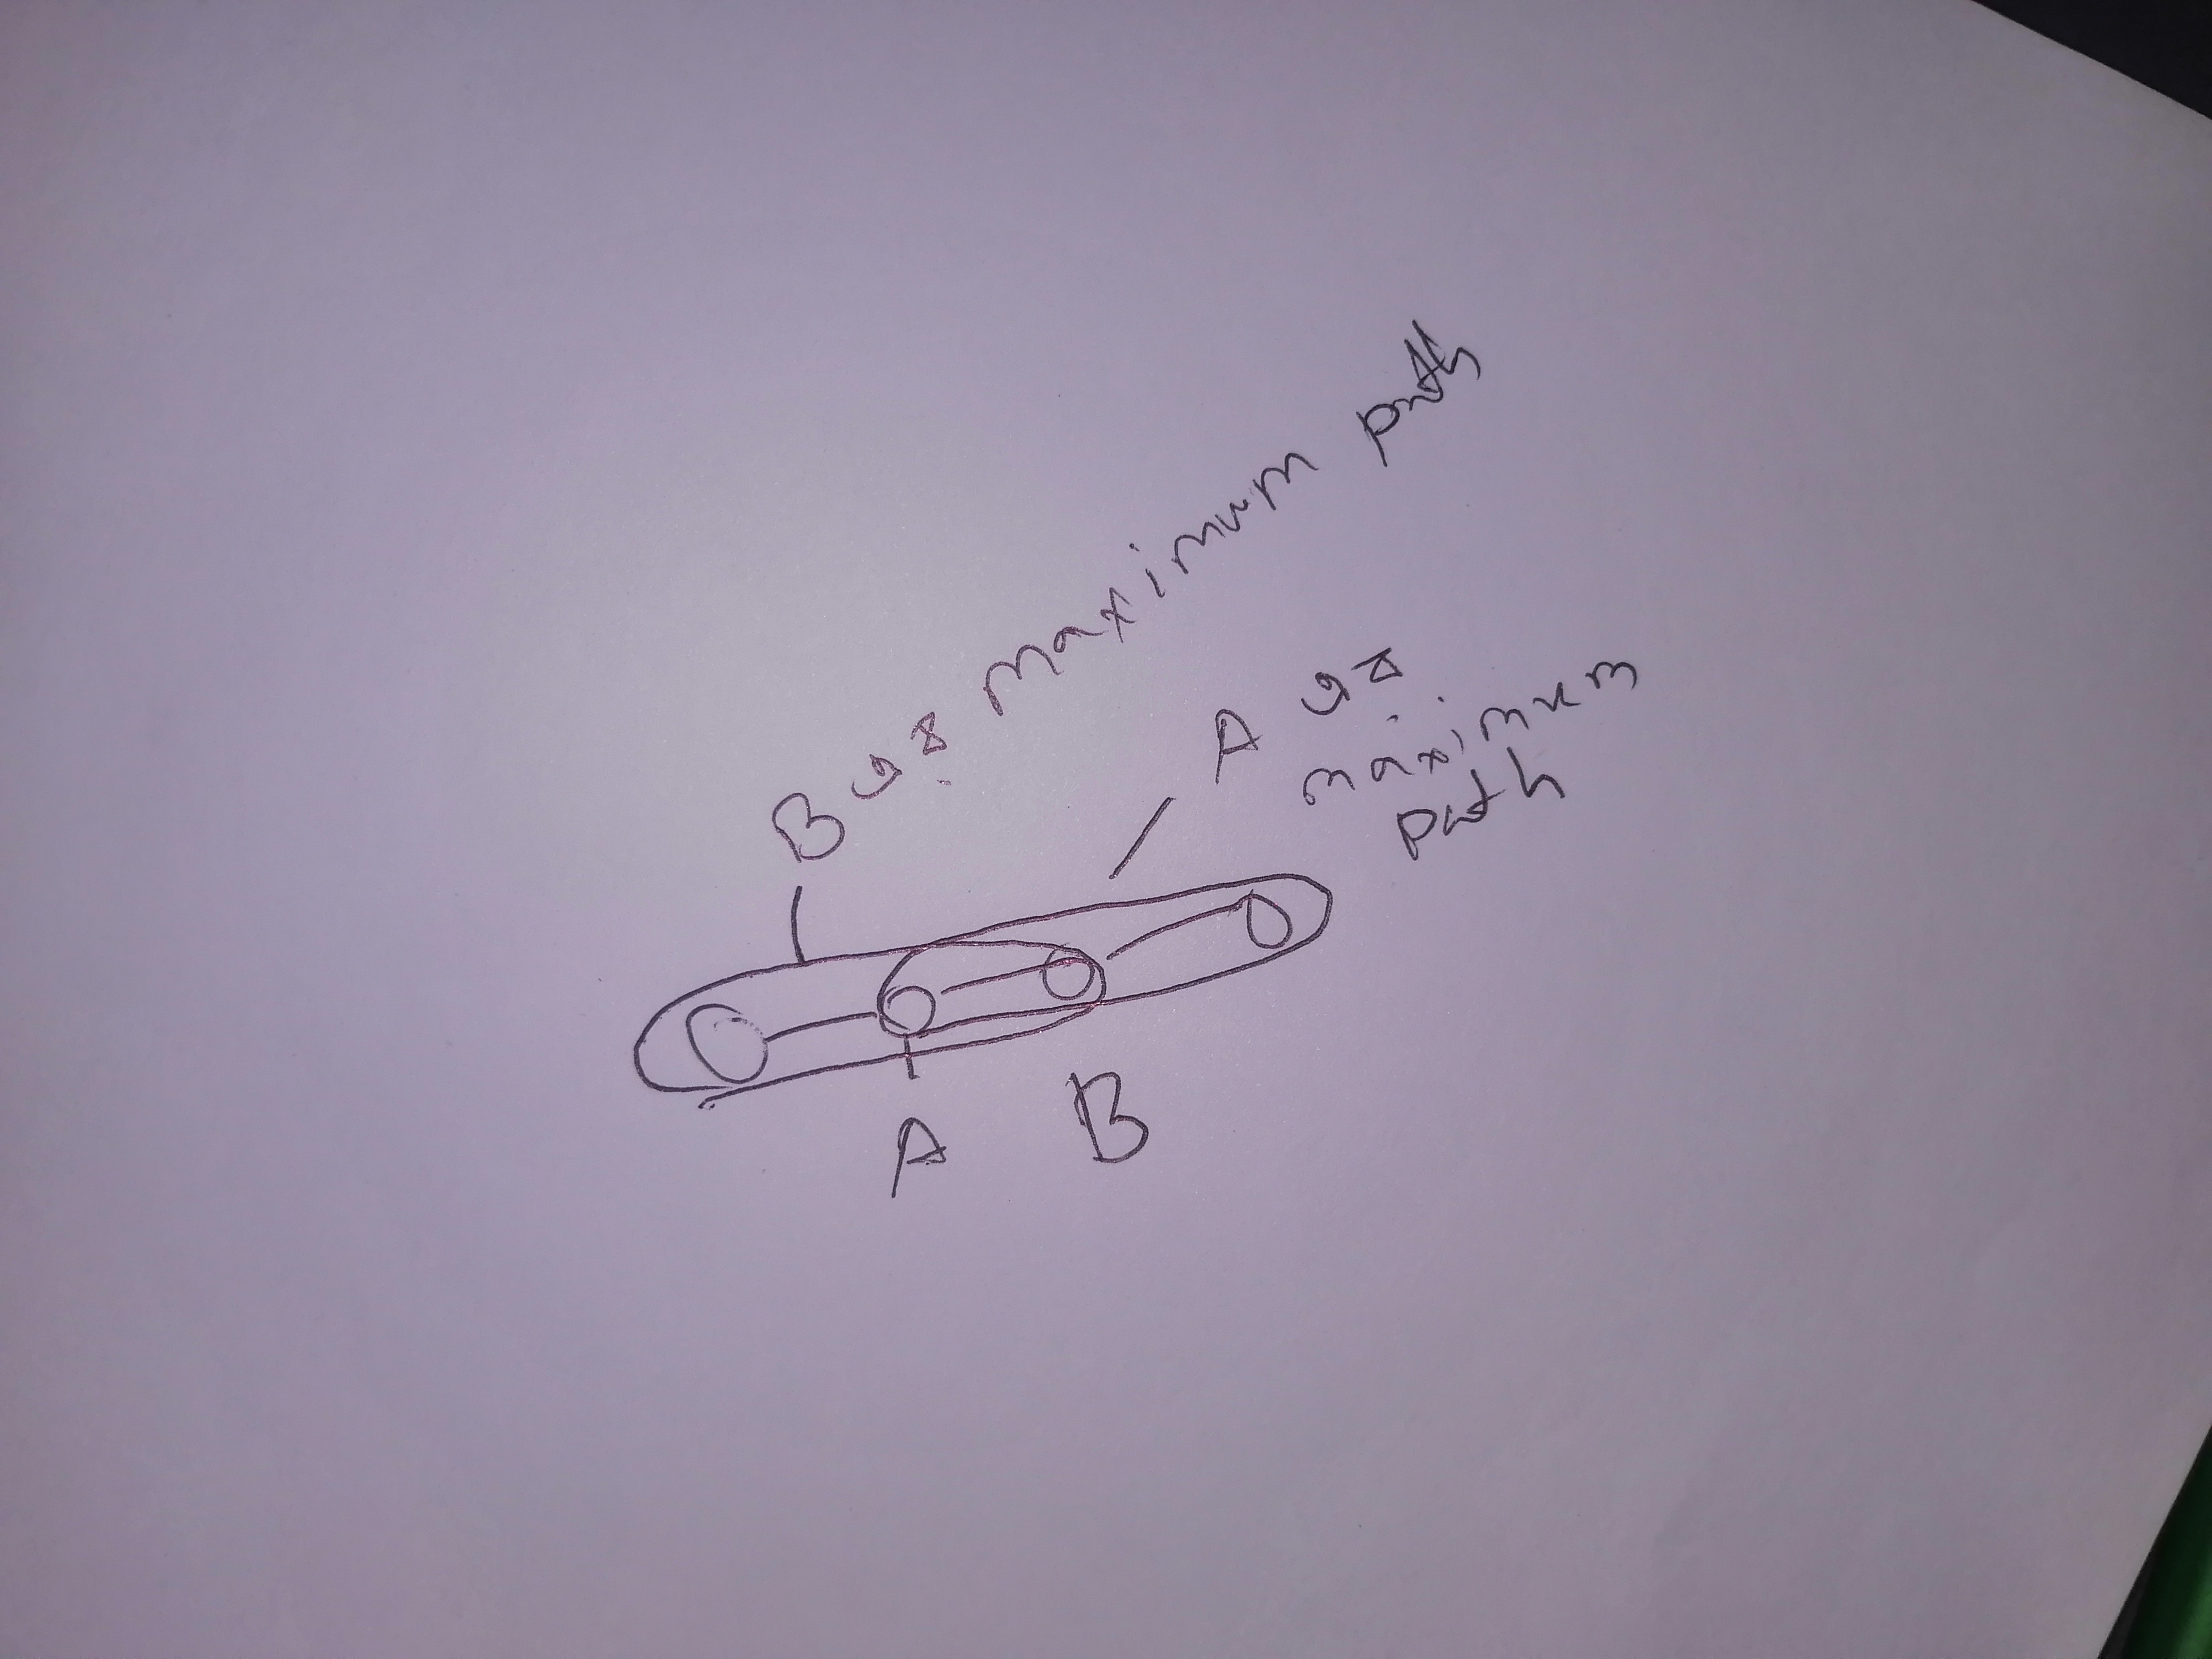 B এর maximum path
A এর
maximum
path
A
B